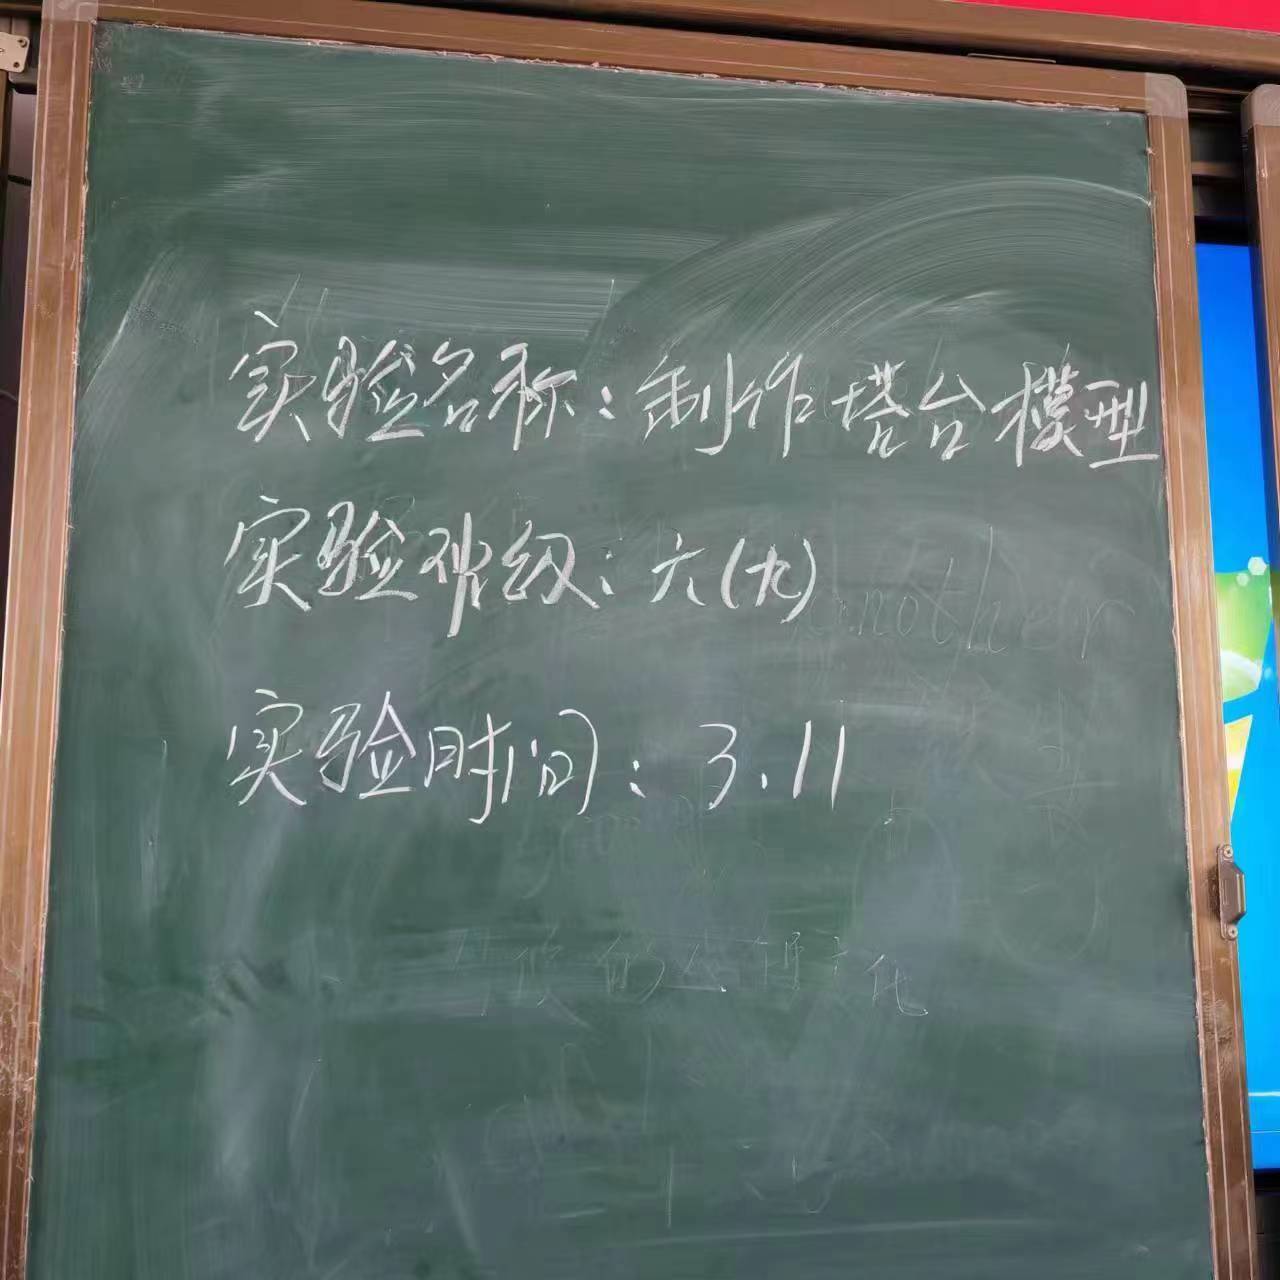 实验名称：制作塔台模型
实验班级：六(九)
another
实验时间：3.11